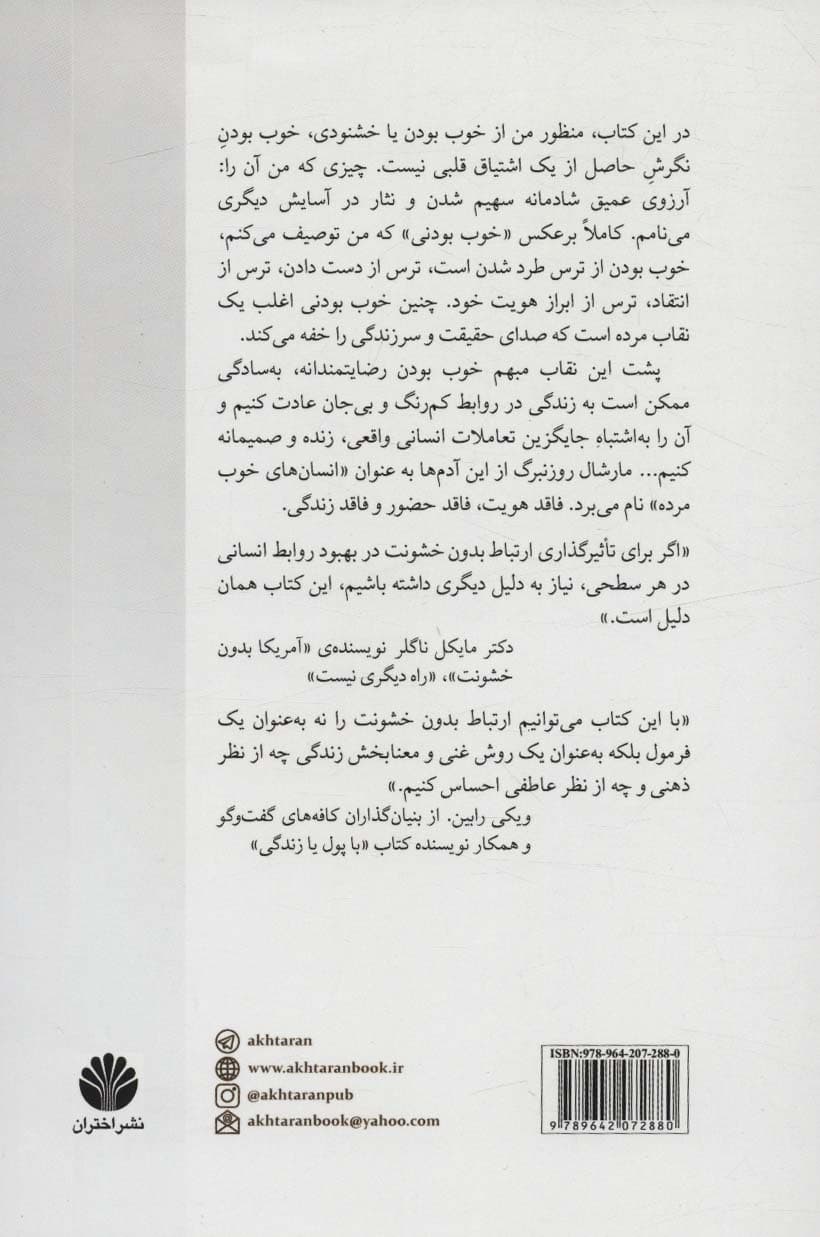 در این کتاب، منظور من از خوب بودن یا خشنودی، خوب بودنِ
نگرشِ حاصل از یک اشتیاق قلبی نیست. چیزی که من آن را:
آرزوی عمیق شادمانه سهیم شدن و نثار در آسایش دیگری
می‌نامم. کاملاً برعکس «خوب بودنی» که من توصیف می‌کنم،
خوب بودن از ترس طرد شدن است، ترس از دست دادن، ترس از
انتقاد، ترس از ابراز هویت خود. چنین خوب بودنی اغلب یک
نقاب مرده است که صدای حقیقت و سرزندگی را خفه می‌کند.
پشت این نقاب مبهم خوب بودن رضایتمندانه، به‌سادگی
ممکن است به زندگی در روابط کم‌رنگ و بی‌جان عادت کنیم و
آن را به‌اشتباهِ جایگزین تعاملات انسانی واقعی، زنده و صمیمانه
کنیم... مارشال روزنبرگ از این آدم‌ها به عنوان «انسان‌های خوب
مرده» نام می‌برد. فاقد هویت، فاقد حضور و فاقد زندگی.
«اگر برای تأثیرگذاری ارتباط بدون خشونت در بهبود روابط انسانی
در هر سطحی، نیاز به دلیل دیگری داشته باشیم، این کتاب همان
دلیل است.»
دکتر مایکل ناگلر نویسنده‌ی «آمریکا بدون
خشونت»، «راه دیگری نیست»
«با این کتاب می‌توانیم ارتباط بدون خشونت را نه به‌عنوان یک
فرمول بلکه به‌عنوان یک روش غنی و معنابخش زندگی چه از نظر
ذهنی و چه از نظر عاطفی احساس کنیم.»
ویکی رابین. از بنیان‌گذاران کافه‌های گفت‌وگو
و همکار نویسنده کتاب «با پول یا زندگی»
akhtaran
www.akhtaranbook.ir
@akhtaranpub
akhtaranbook@yahoo.com
نشر اختران
ISBN:978-964-207-288-0
9 789642 072880